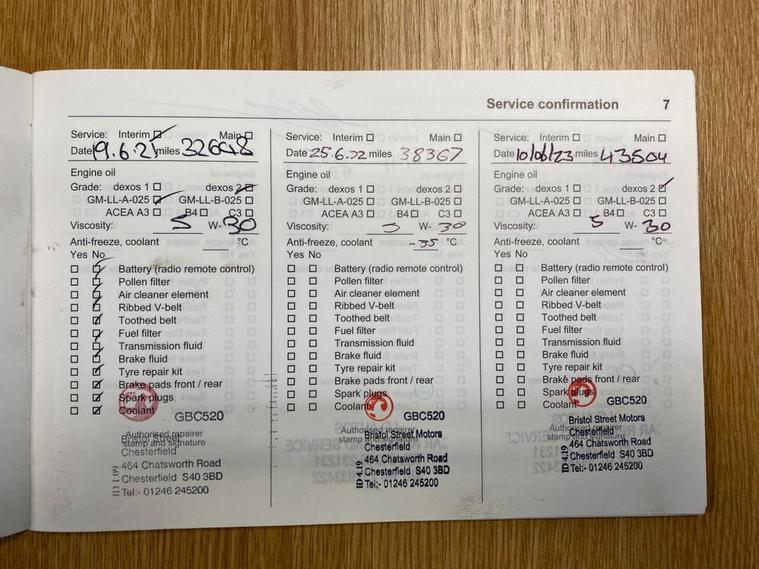 Service confirmation 7
Service: Interim Main
Date 19.6.21 miles 32698
Engine oil
Grade: dexos 1 dexos 2
GM-LL-A-025 GM-LL-B-025
ACEA A3 B4 C3
Viscosity: 5 W- 30
Anti-freeze, coolant °C
Yes No
Battery (radio remote control)
Pollen filter
Air cleaner element
Ribbed V-belt
Toothed belt
Fuel filter
Transmission fluid
Brake fluid
Tyre repair kit
Brake pads front / rear
Spark plugs
Coolant
GBC520
Authorised repairer
stamp and signature
Bristol Street
Chesterfield
464 Chatsworth Road
Chesterfield S40 3BD
Tel:- 01246 245200
Service: Interim Main
Date 25.6.22 miles 38367
Engine oil
Grade: dexos 1 dexos 2
GM-LL-A-025 GM-LL-B-025
ACEA A3 B4 C3
Viscosity: 5 W- 30
Anti-freeze, coolant -35 °C
Yes No
Battery (radio remote control)
Pollen filter
Air cleaner element
Ribbed V-belt
Toothed belt
Fuel filter
Transmission fluid
Brake fluid
Tyre repair kit
Brake pads front / rear
Spark plugs
Coolant
GBC520
Authorised repairer
stamp and signature
Bristol Street Motors
Chesterfield
464 Chatsworth Road
Chesterfield S40 3BD
Tel:- 01246 245200
ID 4.19
Service: Interim Main
Date 10/06/23 miles 43504
Engine oil
Grade: dexos 1 dexos 2
GM-LL-A-025 GM-LL-B-025
ACEA A3 B4 C3
Viscosity: 5 W- 30
Anti-freeze, coolant °C
Yes No
Battery (radio remote control)
Pollen filter
Air cleaner element
Ribbed V-belt
Toothed belt
Fuel filter
Transmission fluid
Brake fluid
Tyre repair kit
Brake pads front / rear
Spark plugs
Coolant
GBC520
Authorised repairer
stamp and signature
Bristol Street Motors
Chesterfield
464 Chatsworth Road
Chesterfield S40 3BD
Tel:- 01246 245200
ID 4.19